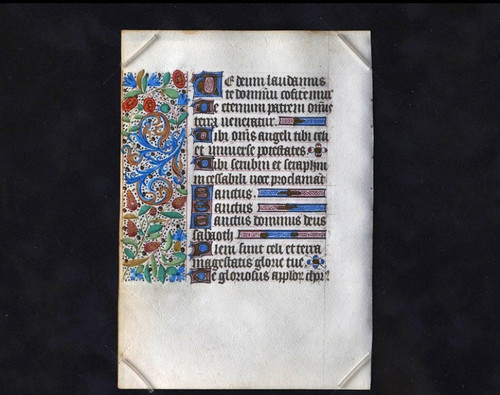 Te deum laudamus
te dominū cōfitemur
Te eternum patrem om̄s
terra veneratur.
Tibi om̄s angeli tibi celi
et universe potestates.
Tibi cerubin et seraphin
incessabili voce proclamāt
Sanctus.
Sanctus
Sanctus dominus deus
sabaoth
Pleni sunt celi et terra
magestatis glorie tue.
Te gloriosus apl̄or̄ chor⁹